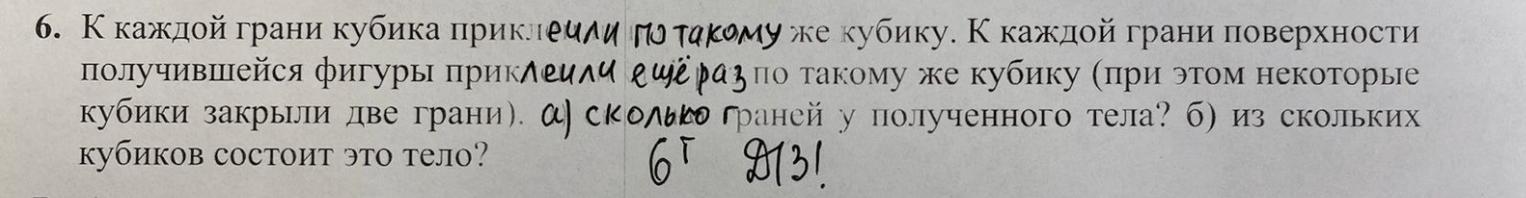 6. К каждой грани кубика приклеили по такому же кубику. К каждой грани поверхности
получившейся фигуры приклеили ещё раз по такому же кубику (при этом некоторые
кубики закрыли две грани). а) сколько граней у полученного тела? б) из скольких
кубиков состоит это тело?
6г Д/З!